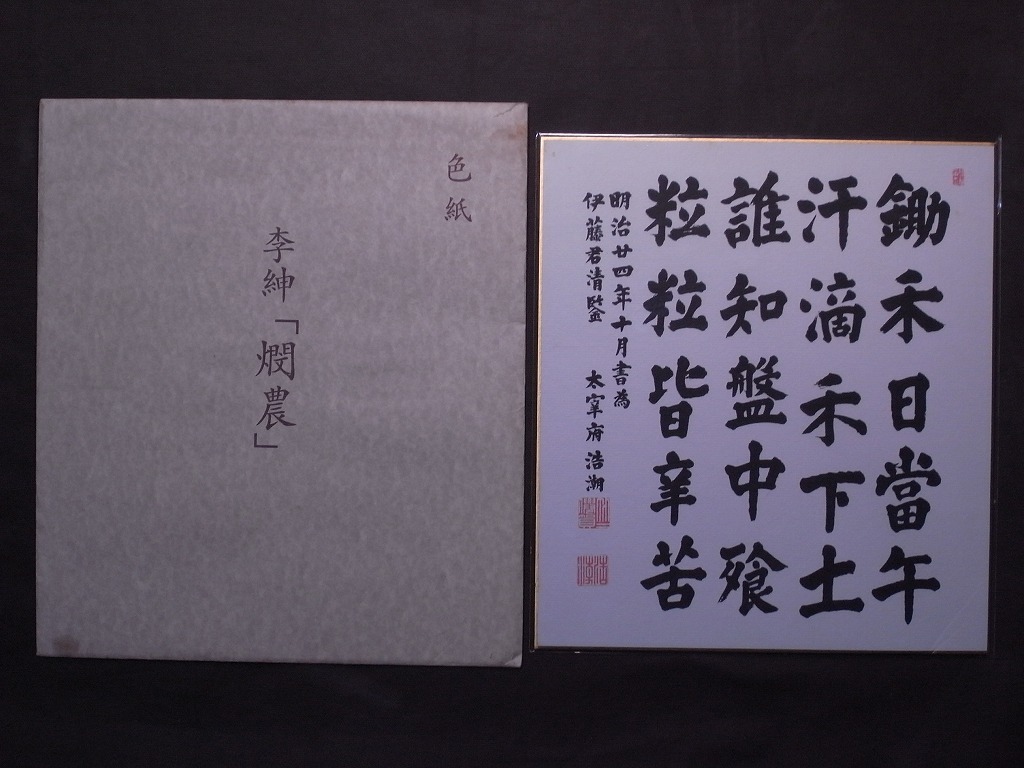 色紙
李紳「憫農」
鋤禾日當午
汗滴禾下土
誰知盤中飱
粒粒皆辛苦
明治廿四年十月書為
伊藤君清鑒 太宰府浩潮